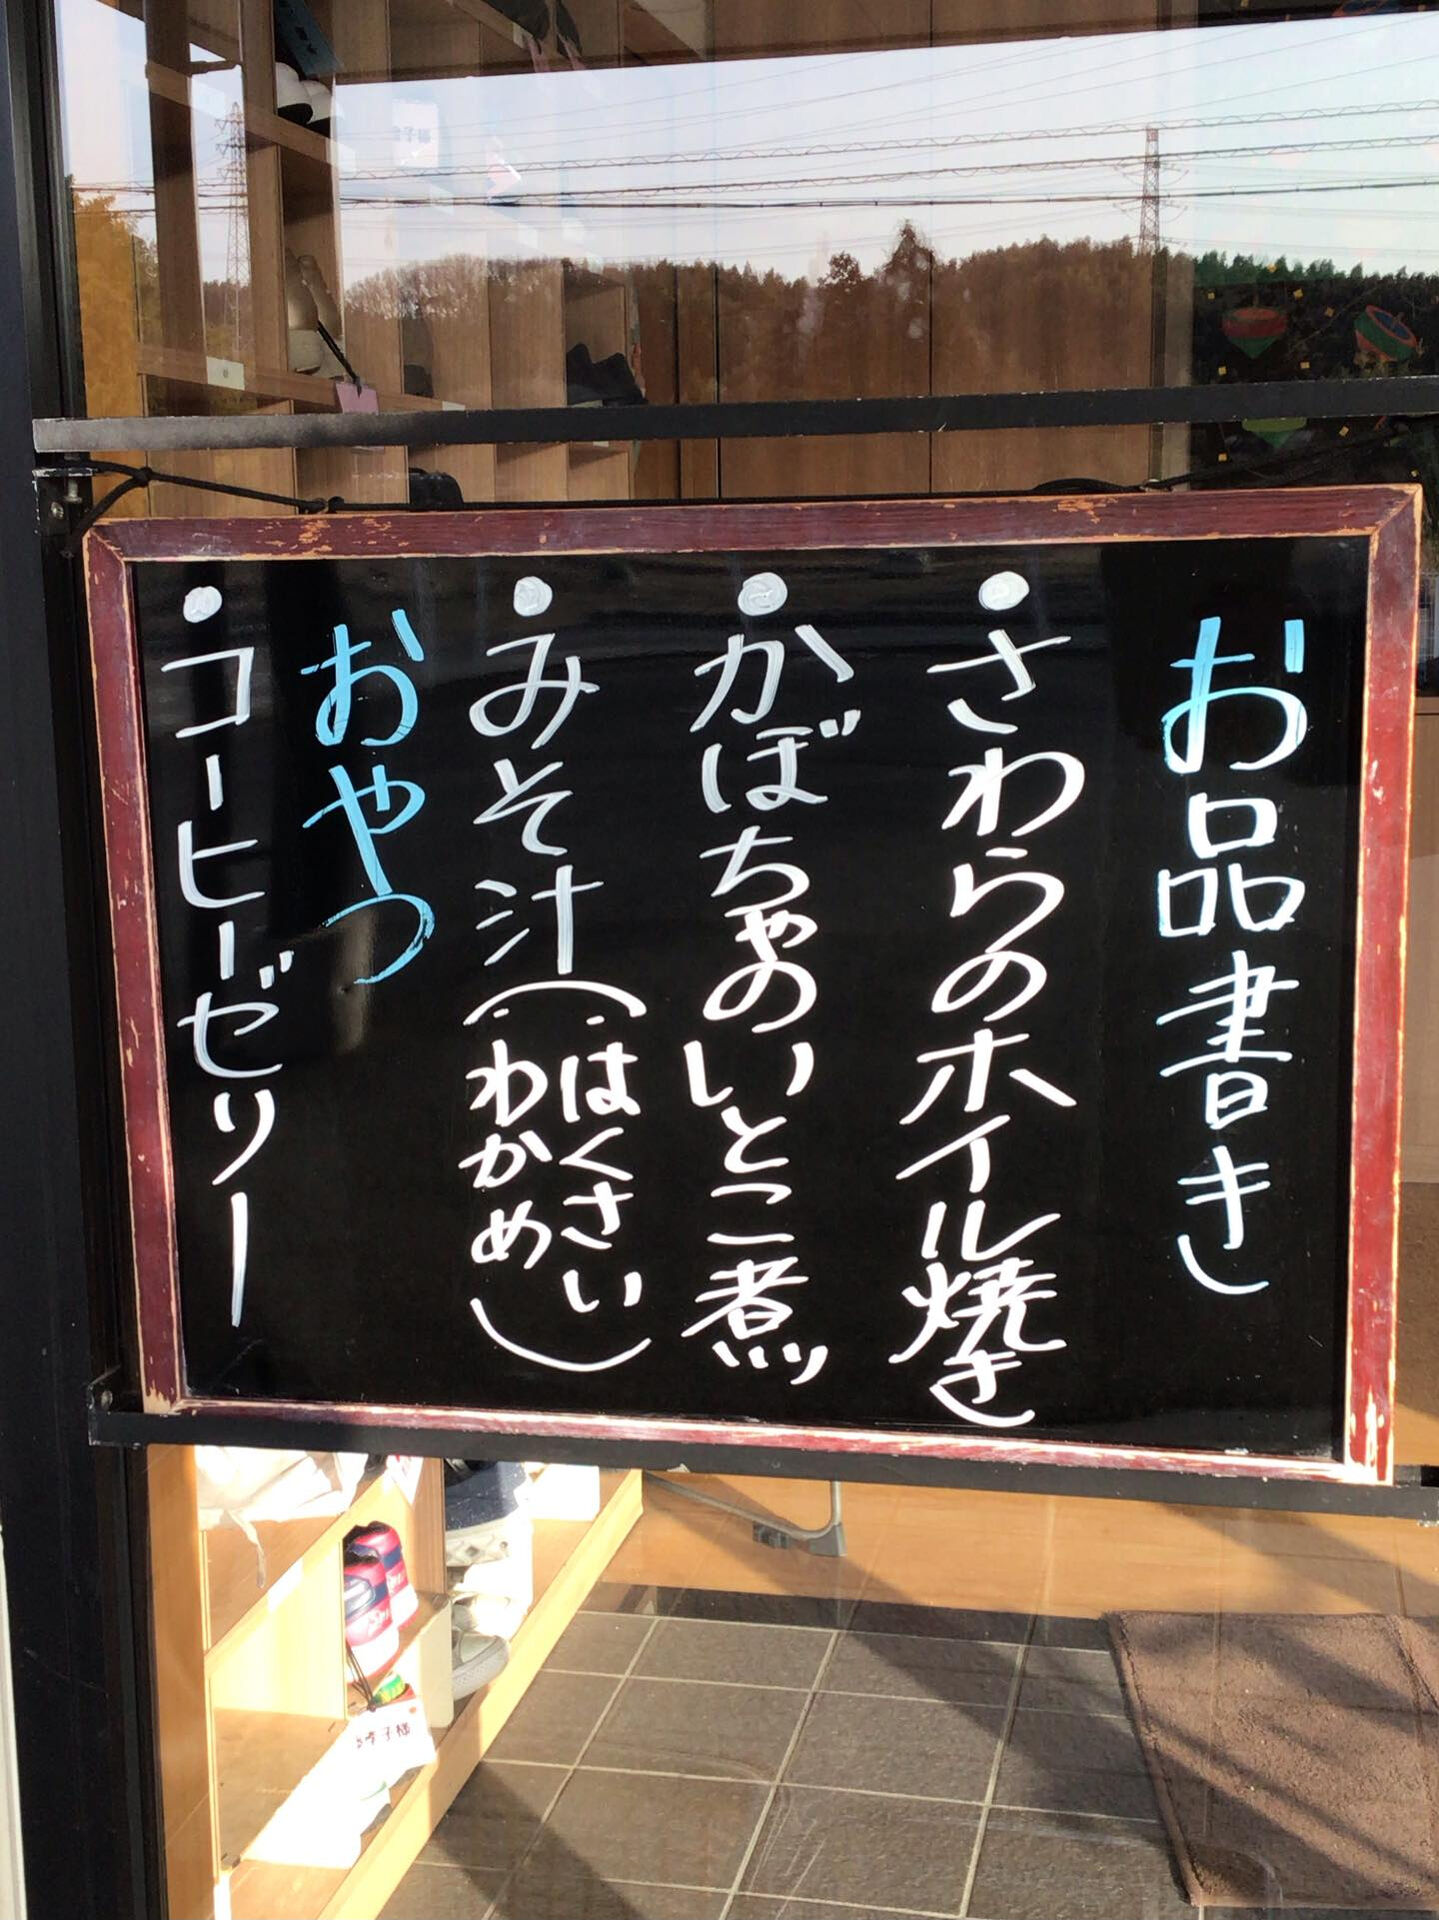 お品書き
・さわらのホイル焼き
・かぼちゃのいとこ煮
・みそ汁(・はくさい
・わかめ)
おやつ
・コーヒーゼリー